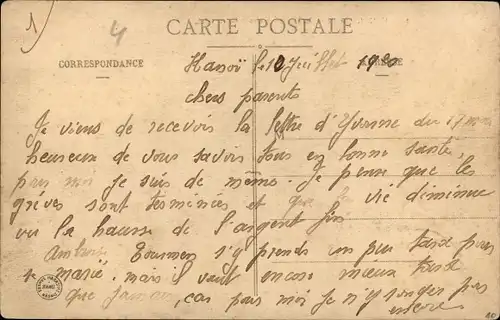 4
CARTE POSTALE
CORRESPONDANCE
Hanoï le 10 Juillet 1920
chers parents
Je viens de recevoir la lettre d'Yvonne du 17 mai
heureux de vous savoir tous en bonne santé,
pour moi je suis de même. Je pense que les
grèves sont terminées et que la vie diminue
vu la hausse de l'argent fin
s'y prends un peu tard pour
se marié. mais il vaut encore mieux tard
que jamais, car pour moi je n'y songe pas
encore.